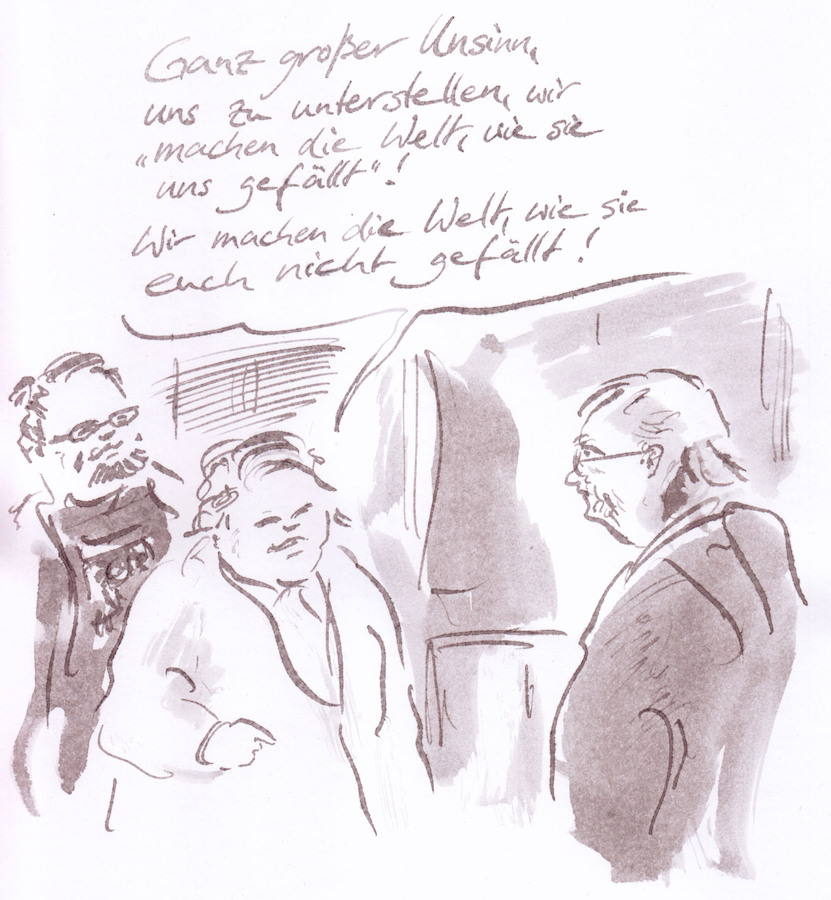 Ganz großer Unsinn,
uns zu unterstellen, wir
„machen die Welt, wie sie
uns gefällt"!
Wir machen die Welt, wie sie
euch nicht gefällt!